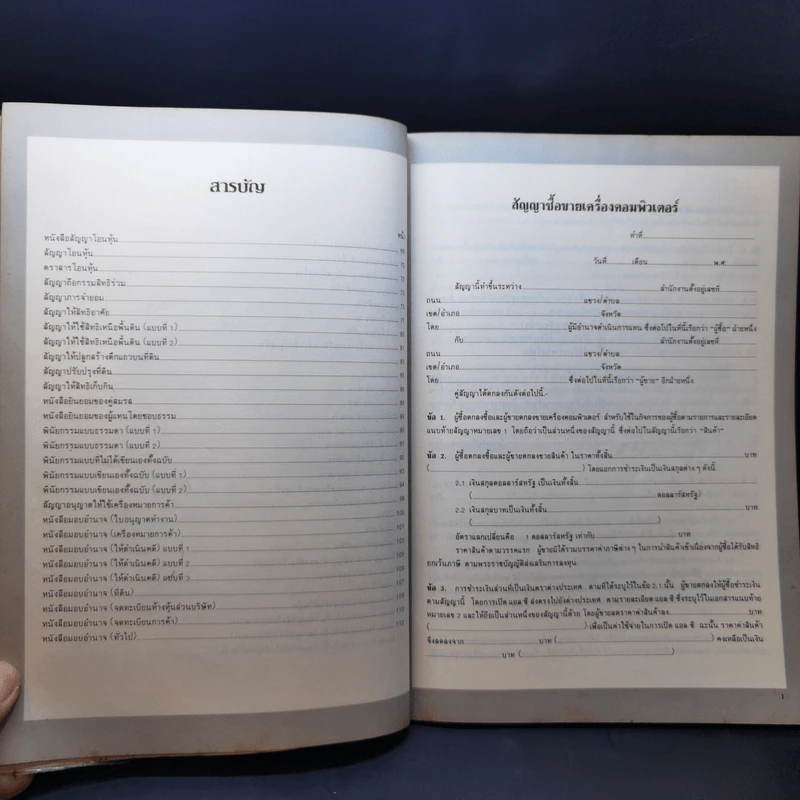 สารบัญ
หน้า
หนังสือสัญญาโอนหุ้น
สัญญาโอนหุ้น
ตราสารโอนหุ้น
สัญญาถือกรรมสิทธิ์ร่วม
สัญญาภาระจำยอม
สัญญาให้สิทธิอาศัย
สัญญาให้ใช้สิทธิเหนือพื้นดิน (แบบที่ 1)
สัญญาให้ใช้สิทธิเหนือพื้นดิน (แบบที่ 2)
สัญญาให้ปลูกสร้างตึกแถวบนที่ดิน
สัญญาปรับปรุงที่ดิน
สัญญาให้สิทธิเก็บกิน
หนังสือยินยอมของคู่สมรส
หนังสือยินยอมของผู้แทนโดยชอบธรรม
พินัยกรรมแบบธรรมดา (แบบที่ 1)
พินัยกรรมแบบธรรมดา (แบบที่ 2)
พินัยกรรมแบบที่ไม่ได้เขียนเองทั้งฉบับ
พินัยกรรมแบบเขียนเองทั้งฉบับ (แบบที่ 1)
พินัยกรรมแบบเขียนเองทั้งฉบับ (แบบที่ 2)
สัญญาอนุญาตให้ใช้เครื่องหมายการค้า
หนังสือมอบอำนาจ (ใบอนุญาตทำงาน) 100
หนังสือมอบอำนาจ (เครื่องหมายการค้า) 101
หนังสือมอบอำนาจ (ให้ดำเนินคดี) แบบที่ 1
หนังสือมอบอำนาจ (ให้ดำเนินคดี) แบบที่ 2
หนังสือมอบอำนาจ (ให้ดำเนินคดี) แบบที่ 3
หนังสือมอบอำนาจ (ที่ดิน)
หนังสือมอบอำนาจ (จดทะเบียนห้างหุ้นส่วนบริษัท)
หนังสือมอบอำนาจ (จดทะเบียนการค้า)
หนังสือมอบอำนาจ (ทั่วไป)
สัญญาซื้อขายเครื่องคอมพิวเตอร์
ทำที่
วันที่ เดือน พ.ศ.
สัญญานี้ทำขึ้นระหว่าง สำนักงานตั้งอยู่เลขที่
ถนน แขวง/ตำบล
เขต/อำเภอ จังหวัด
โดย ผู้มีอำนาจดำเนินการแทน ซึ่งต่อไปในที่นี้เรียกว่า "ผู้ซื้อ" ฝ่ายหนึ่ง
กับ สำนักงานตั้งอยู่เลขที่
ถนน แขวง/ตำบล
เขต/อำเภอ จังหวัด
โดย ซึ่งต่อไปในที่นี้เรียกว่า "ผู้ขาย" อีกฝ่ายหนึ่ง
คู่สัญญาได้ตกลงกันดังต่อไปนี้.-
ข้อ 1. ผู้ซื้อตกลงซื้อและผู้ขายตกลงขายเครื่องคอมพิวเตอร์ สำหรับใช้ในกิจการของผู้ซื้อตามรายการและรายละเอียด
แนบท้ายสัญญาหมายเลข 1 โดยถือว่าเป็นส่วนหนึ่งของสัญญานี้ ซึ่งต่อไปในสัญญานี้เรียกว่า "สินค้า"
ข้อ 2. ผู้ซื้อตกลงซื้อและผู้ขายตกลงขายสินค้า ในราคาทั้งสิ้น บาท
( ) โดยแยกการชำระเงินเป็นเงินสกุลต่าง ๆ ดังนี้
2.1 เงินสกุลดอลลาร์สหรัฐ เป็นเงินทั้งสิ้น
( ดอลลาร์สหรัฐ)
2.2 เงินสกุลบาทเป็นเงินทั้งสิ้น บาท
( )
อัตราแลกเปลี่ยนคือ 1 ดอลลาร์สหรัฐ เท่ากับ บาท
ราคาสินค้าตามวรรคแรก ผู้ขายมิได้รวมบรรดาค่าภาษีต่าง ๆ ในการนำสินค้าเข้าเนื่องจากผู้ซื้อได้รับสิทธิ
ยกเว้นภาษี ตามพระราชบัญญัติส่งเสริมการลงทุน
ข้อ 3. การชำระเงินส่วนที่เป็นเงินตราต่างประเทศ ตามที่ได้ระบุไว้ในข้อ 2.1 นั้น ผู้ขายตกลงให้ผู้ซื้อชำระเงิน
ตามสัญญานี้ โดยการเปิด แอล ซี ส่งตรงไปยังต่างประเทศ ตามรายละเอียด แอล ซี ซึ่งระบุไว้ในเอกสารแนบท้าย
หมายเลข 2 และให้ถือเป็นส่วนหนึ่งของสัญญานี้ด้วย โดยผู้ขายลดราคาค่าสินค้าลง บาท
( ) เพื่อเป็นค่าใช้จ่ายในการเปิด แอล ซี ฉะนั้น ราคาค่าสินค้า
จึงลดลงจาก บาท ( ) คงเหลือเป็นเงิน
บาท ( )
1